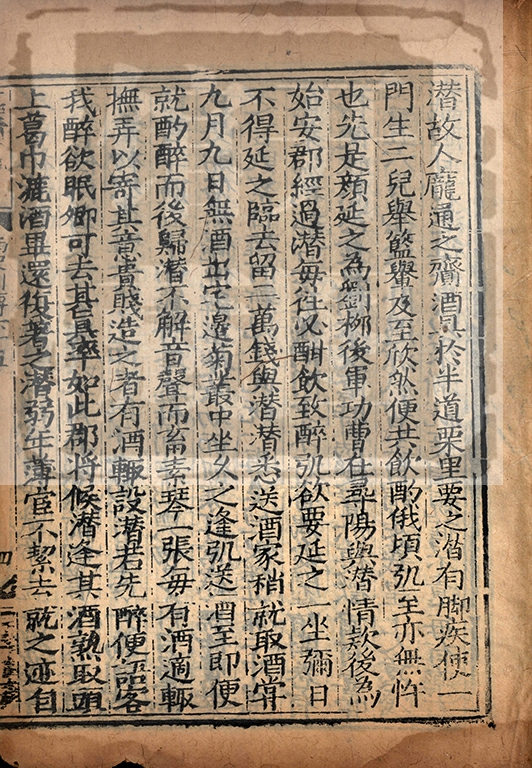 潜故人龐通之齎酒具於半道栗里要之潜有脚疾使一
門生二兒舉籃轝及至欣然便共飲酌俄頃弘至亦無忤
也先是顔延之為劉柳後軍功曹在尋陽與潜情款後為
始安郡經過潜毎往必酣飲致醉弘欲要延之一坐彌日
不得延之臨去留二萬錢與潜潜悉送酒家稍就取酒甞
九月九日無酒出宅邊菊叢中坐久之逢弘送酒至即便
就酌醉而後歸潜不解音聲而畜素琴一張毎有酒適輙
撫弄以寄其意貴賤造之者有酒輙設潜若先醉便語客
我醉欲眠卿可去其真率如此郡將候潜逢其酒熟取頭
上葛巾漉酒畢還復著之潜弱年薄官不絜去就之迹自